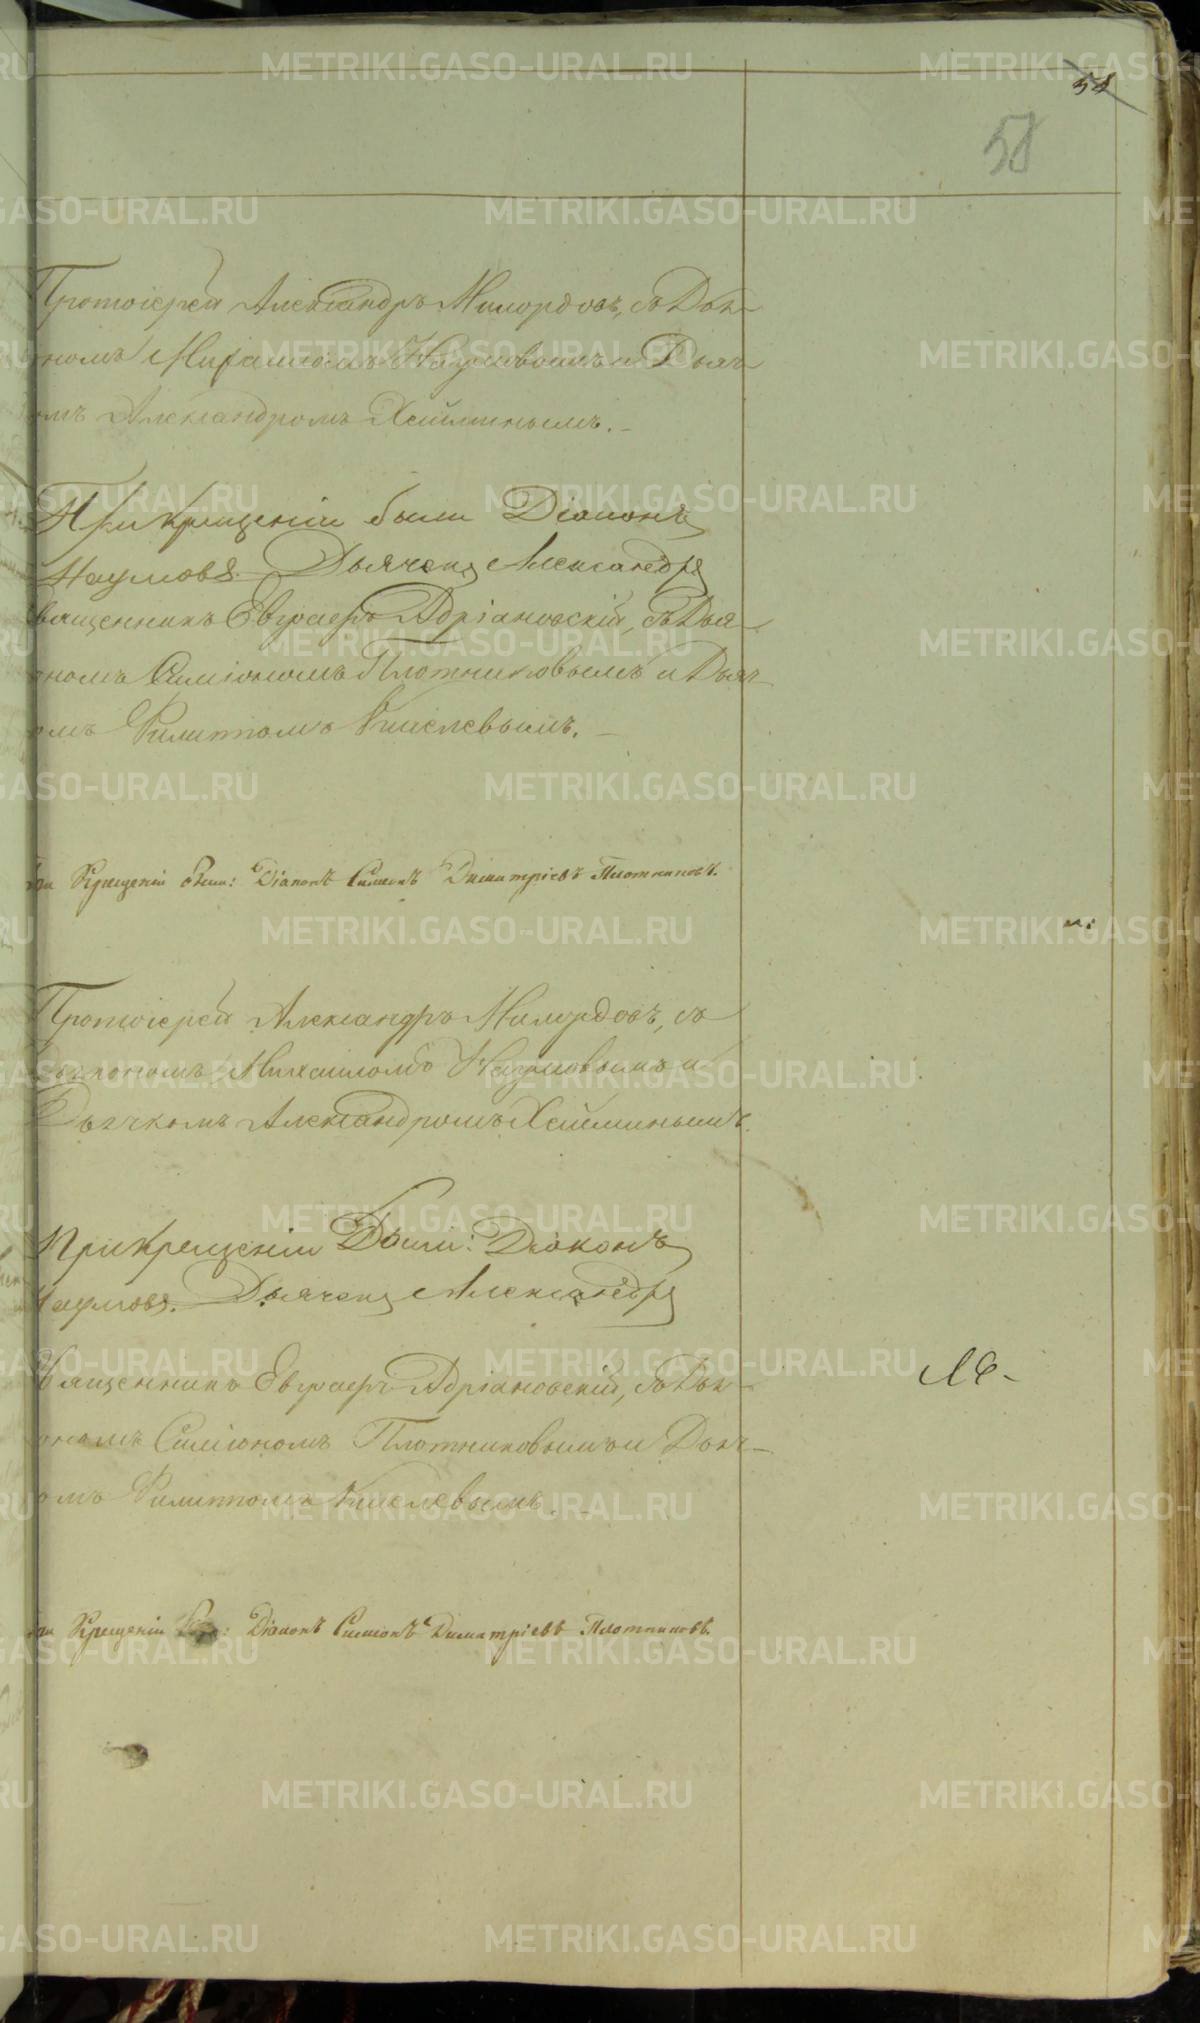 58
58
Протоіерей Александръ Милордовъ, съ Дья-
кономъ Михаиломъ Наумовымъ и Дьяч-
омъ Александромъ
При Крещеніи были Діаконъ
Наумовъ. Дьячекъ Александръ
вященникъ Евграфъ Адріановскій, съ Дья-
кономъ Симіономъ Плотниковымъ и Дьяч-
омъ Филиппомъ Киселевымъ.
При Крещеніи были: Діаконъ Симеонъ Димитріевъ Плотниковъ.
Протоіерей Александръ Милордовъ, съ
Дьякономъ Михаиломъ Наумовымъ и
Дьячкомъ Александромъ
При Крещеніи Были: Діаконъ
Наумовъ. Дьячекъ Александръ
Священникъ Евграфъ Адріановскій, съ Дья-
кономъ Симіономъ Плотниковымъ и Дьяч-
омъ Филиппомъ Киселевымъ.
При Крещеніи Были: Діаконъ Симеонъ Димитріевъ Плотниковъ.
METRIKI.GASO-URAL.RU